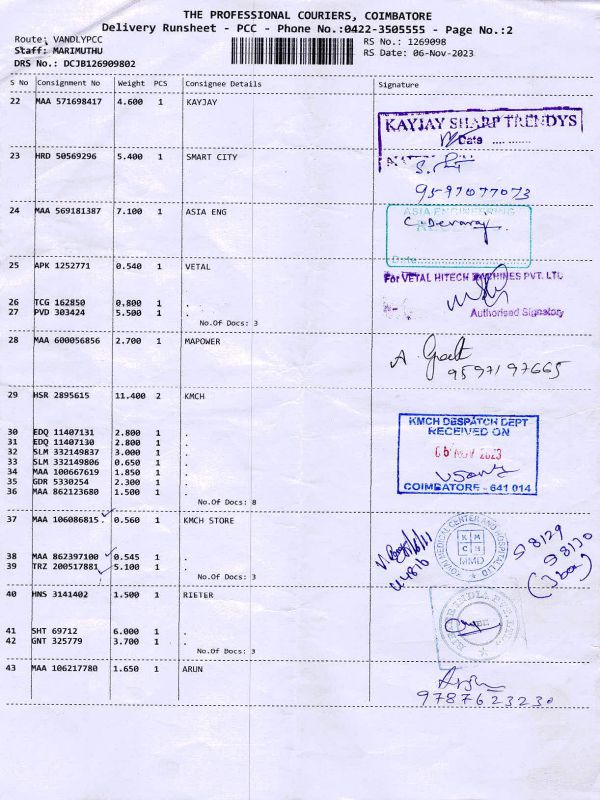 THE PROFESSIONAL COURIERS, COIMBATORE
Delivery Runsheet - PCC - Phone No.:0422-3505555 - Page No.:2
Route: VANDLYPCC
RS No.: 1269098
Staff: MARIMUTHU
RS Date: 06-Nov-2023
DRS No.: DCJB126909802
S No Consignment No Weight PCS Consignee Details Signature
22 MAA 571698417 4.600 1 KAYJAY
KAYJAY SHARP TRENDYS
Date .... ........
23 HRD 50569296 5.400 1 SMART CITY
9597077073
24 MAA 569181387 7.100 1 ASIA ENG
ASIA ENGINEERING
C. Devaraj
Date
25 APK 1252771 0.540 1 VETAL
For VETAL HITECH MACHINES PVT. LTD
26 TCG 162850 0.800 1 .
27 PVD 303424 5.500 1 .
Authorised Signatory
No.Of Docs: 3
28 MAA 600056856 2.700 1 MAPOWER
9597197665
29 HSR 2895615 11.400 2 KMCH
KMCH DESPATCH DEPT
RECEIVED ON
30 EDQ 11407131 2.800 1 .
31 EDQ 11407130 2.800 1 .
32 SLM 332149837 3.000 1 .
06 NOV 2023
33 SLM 332149806 0.650 1 .
34 MAA 100667619 1.850 1 .
35 GDR 5330254 2.300 1 .
36 MAA 862123680 1.500 1 .
COIMBATORE - 641 014
No.Of Docs: 8
37 MAA 106086815 0.560 1 KMCH STORE
KMCH
MMD
98129
98130
(3 box)
38 MAA 862397100 0.545 1 .
39 TRZ 200517881 5.100 1 .
No.Of Docs: 3
40 HNS 3141402 1.500 1 RIETER
41 SHT 69712 6.000 1 .
42 GNT 325779 3.700 1 .
No.Of Docs: 3
43 MAA 106217780 1.650 1 ARUN
9787623230